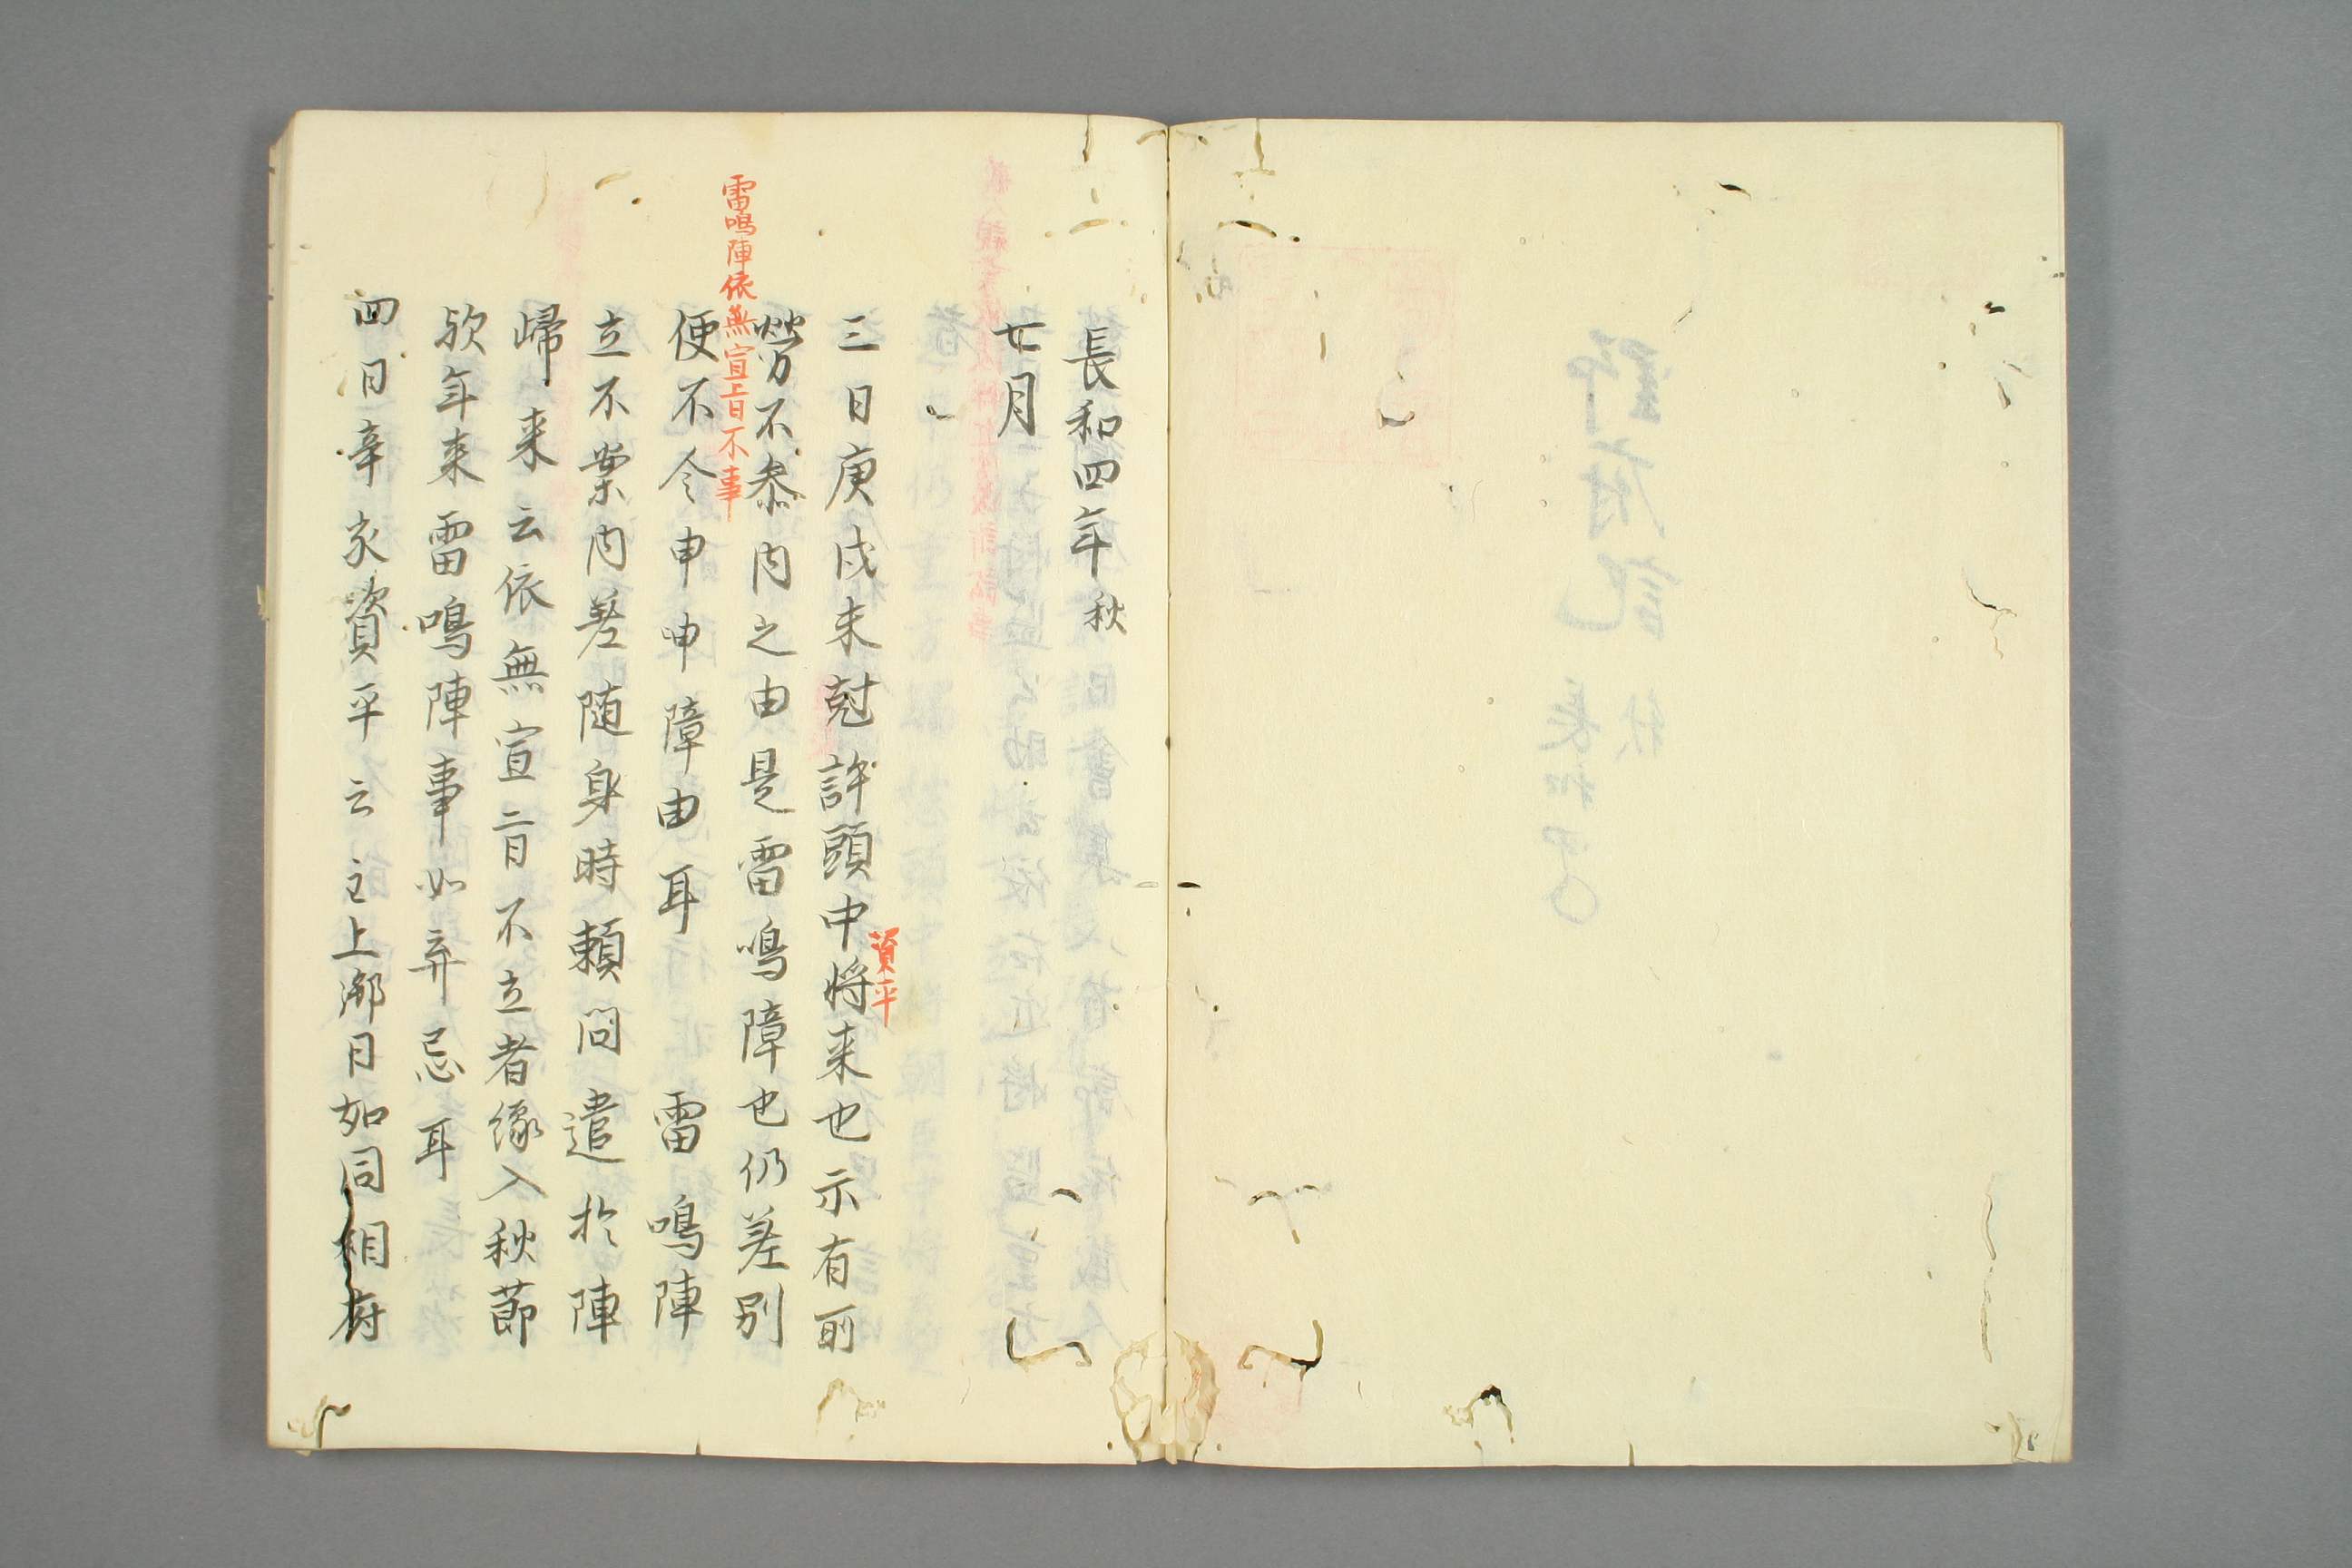 長和四年秋
七月
三日庚戌未尅許頭中将来也示有所
資平
労不参内之由是雷鳴障也仍差別
雷鳴陣依無宣旨不事
便不令申申障由耳　雷鳴陣
立不案内差随身時頼問遣於陣
帰来云依無宣旨不立者縁入秋節
欤年来雷鳴陣事如弃忌耳
四日辛亥資平云主上御目如同相府